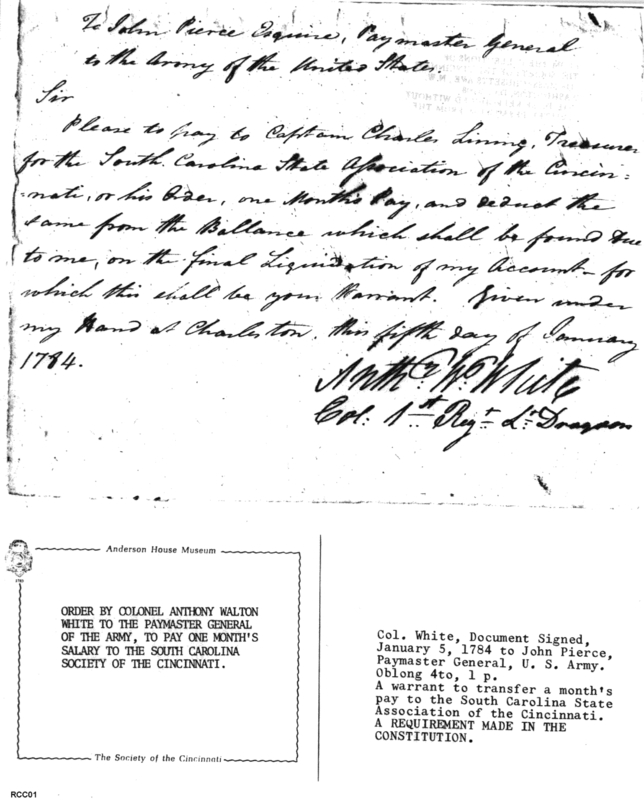 To John Pierce Esquire, Paymaster General
to the Army of the United States.
Sir
Please to pay to Captain Charles Lining, Treasurer
for the South Carolina State Association of the Cincin=
=nati, or his Order, one Month's Pay, and deduct the
same from the Ballance which shall be found Due
to me, on the final Liquidation of my Account – for
which this shall be your Warrant. Given under
my Hand at Charleston, this fifth day of January
1784.
Anthy. W. White
Col: 1st Regt. Lt. Dragoons
Anderson House Museum
ORDER BY COLONEL ANTHONY WALTON
WHITE TO THE PAYMASTER GENERAL
OF THE ARMY, TO PAY ONE MONTH'S
SALARY TO THE SOUTH CAROLINA
SOCIETY OF THE CINCINNATI.
The Society of the Cincinnati
Col. White, Document Signed,
January 5, 1784 to John Pierce,
Paymaster General, U. S. Army.
Oblong 4to, 1 p.
A warrant to transfer a month's
pay to the South Carolina State
Association of the Cincinnati.
A REQUIREMENT MADE IN THE
CONSTITUTION.
RCC01